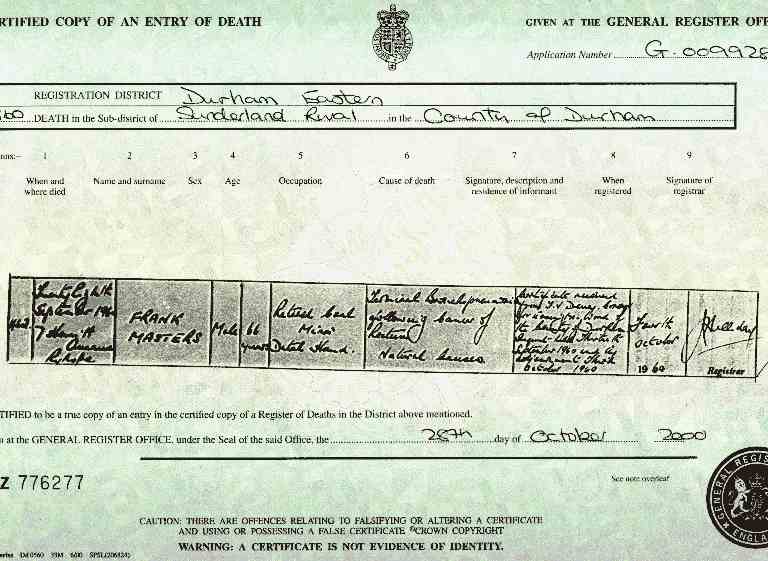 RTIFIED COPY OF AN ENTRY OF DEATH
GIVEN AT THE GENERAL REGISTER OFF
Application Number G.009928
REGISTRATION DISTRICT Durham Eastern
60 DEATH in the Sub-district of Sunderland Rural in the County of Durham
1 2 3 4 5 6 7 8 9
When and where died
Name and surname
Sex
Age
Occupation
Cause of death
Signature, description and residence of informant
When registered
Signature of registrar
Twenty Eighth
September 1960
7
Ryhope
FRANK
MASTERS
Male
66
years
Retired Coal
Miner
Hand.
Terminal Bronchopneumonia
following cancer of
Rectum
Natural causes
Certificate received
from
the County of Durham
Inquest held Thirtieth
September 1960
October 1960
Fourth
October
1960
Halliday
Registrar
TIFIED to be a true copy of an entry in the certified copy of a Register of Deaths in the District above mentioned.
n at the GENERAL REGISTER OFFICE, under the Seal of the said Office, the 28th day of October 2000
Z 776277
See note overleaf
CAUTION: THERE ARE OFFENCES RELATING TO FALSIFYING OR ALTERING A CERTIFICATE
AND USING OR POSSESSING A FALSE CERTIFICATE ©CROWN COPYRIGHT
WARNING: A CERTIFICATE IS NOT EVIDENCE OF IDENTITY.
GENERAL REGIS
ENGLA